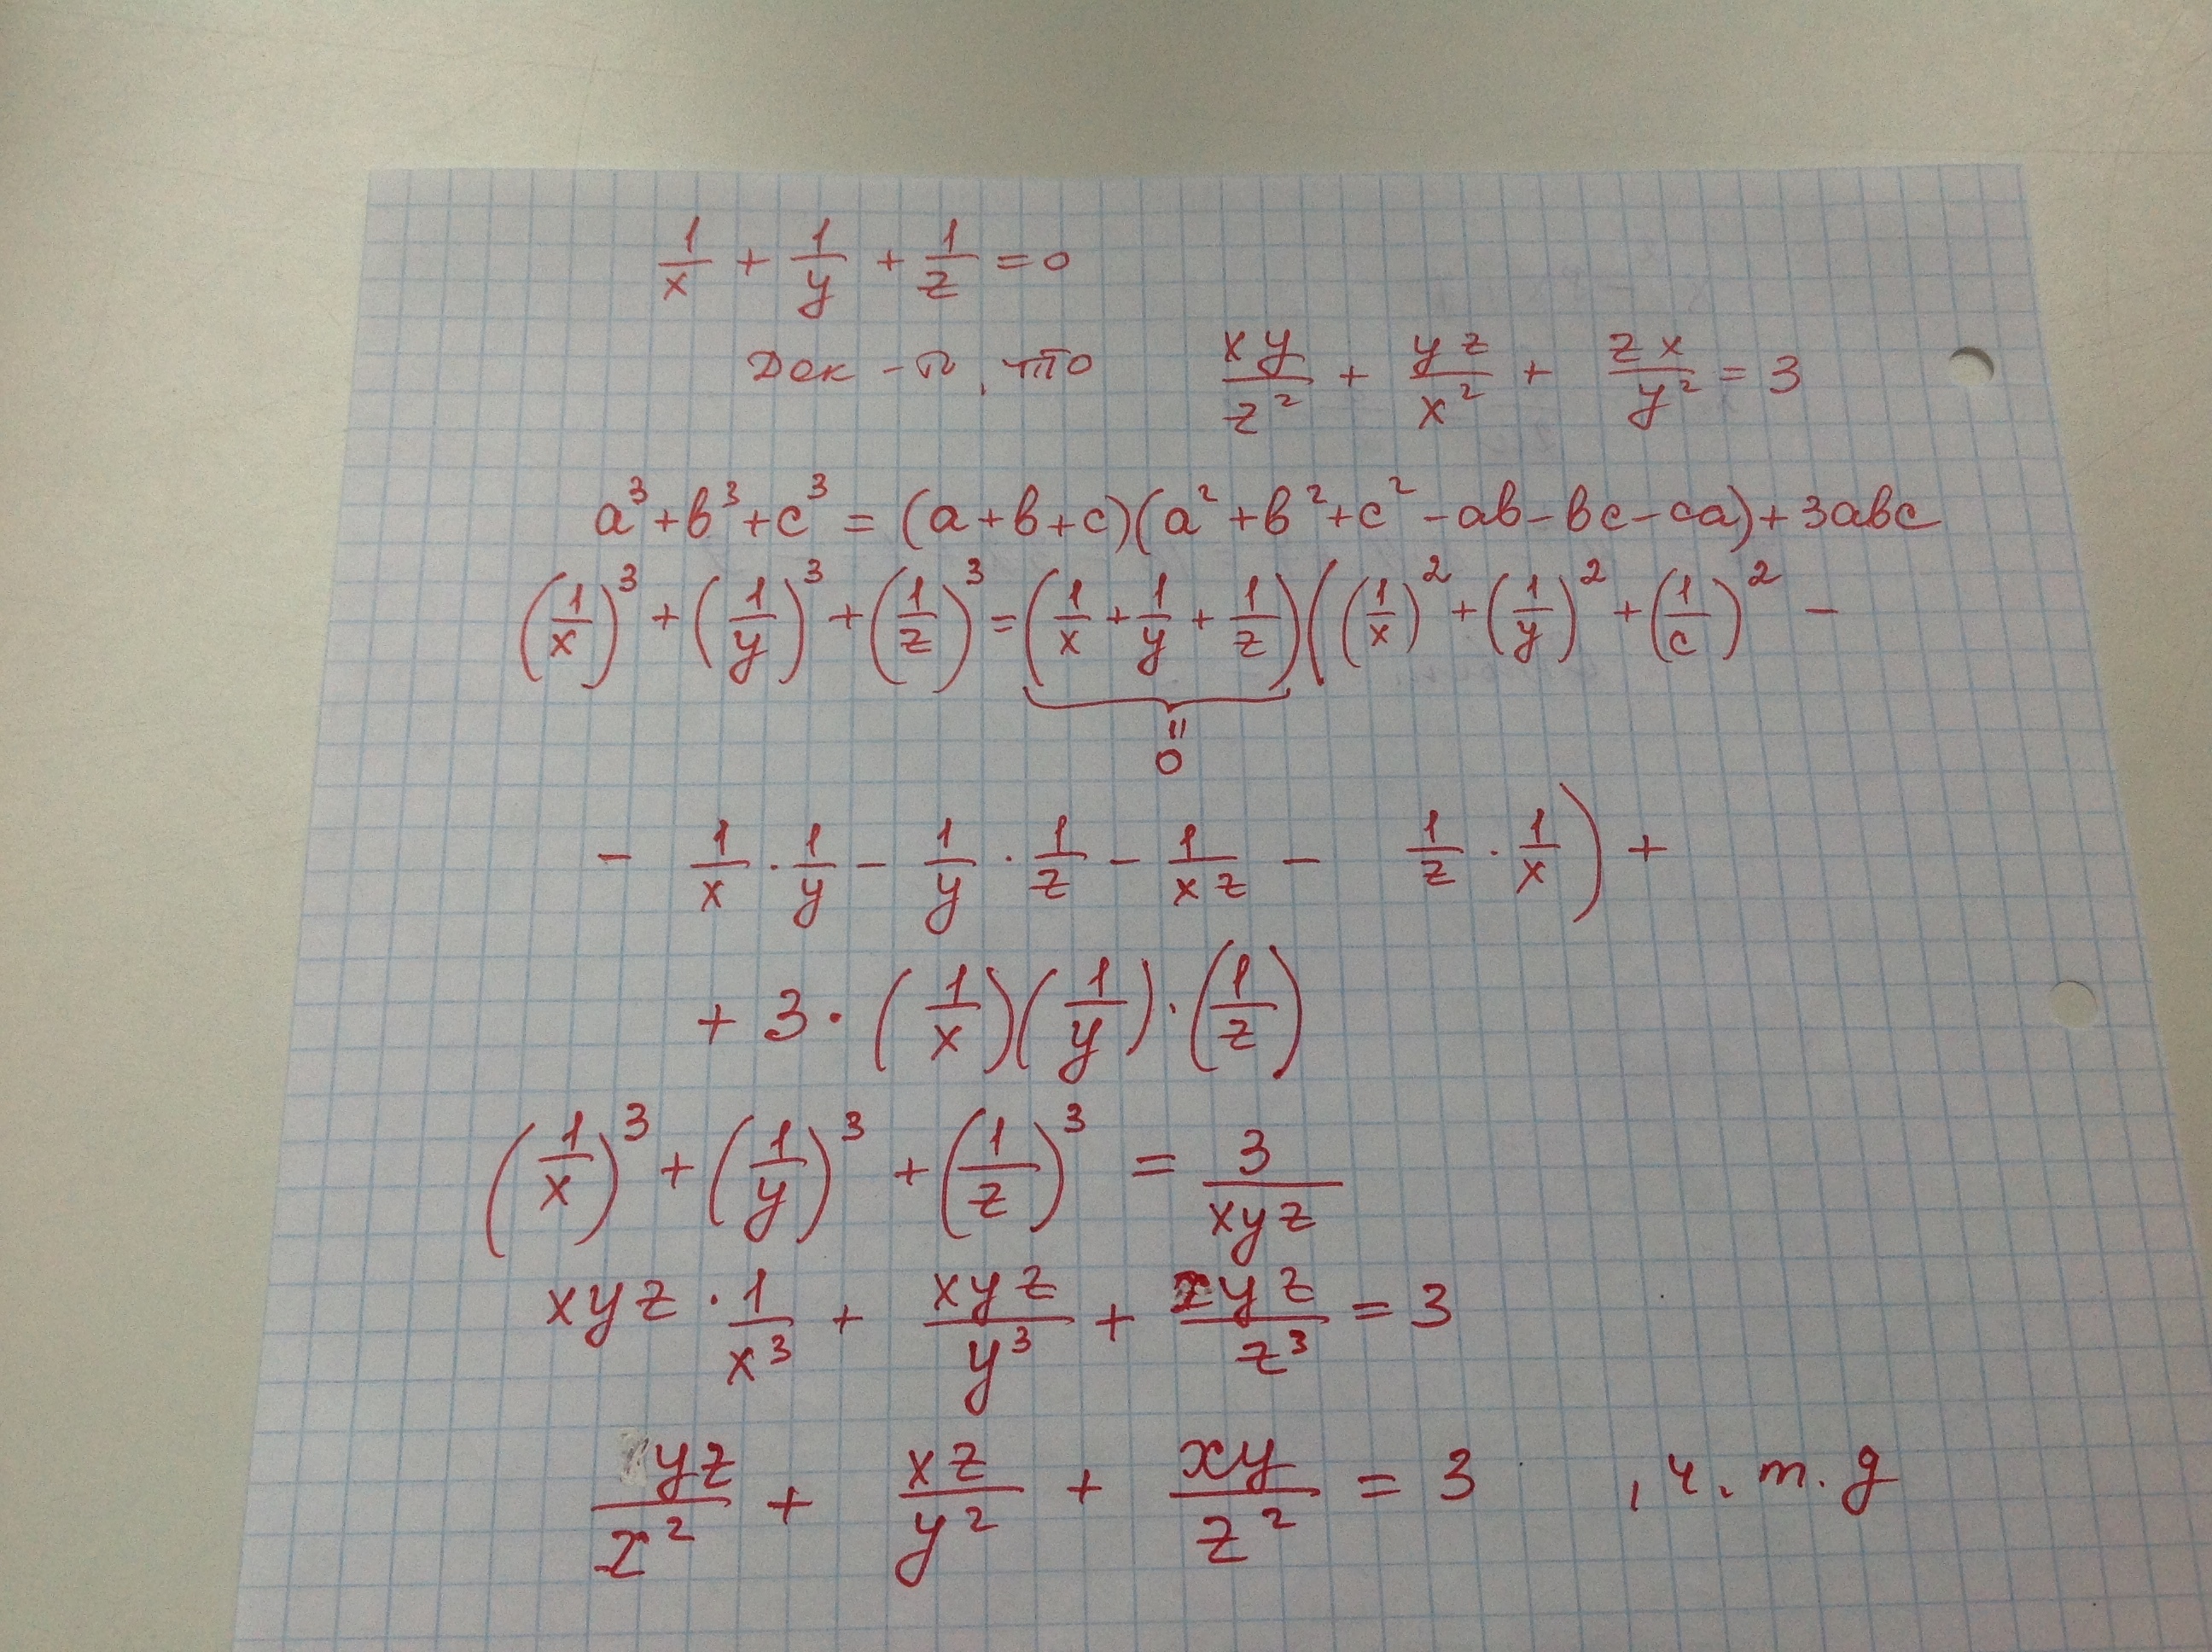 1/x + 1/y + 1/z = 0
Док-ть, что xy/z² + yz/x² + zx/y² = 3
a³+b³+c³ = (a+b+c)(a²+b²+c²-ab-bc-ca)+3abc
(1/x)³ + (1/y)³ + (1/z)³ = (1/x + 1/y + 1/z)((1/x)² + (1/y)² + (1/c)² -
"
0
- 1/x · 1/y - 1/y · 1/z - 1/xz - 1/z · 1/x) +
+ 3 · (1/x)(1/y) · (1/z)
(1/x)³ + (1/y)³ + (1/z)³ = 3/xyz
xyz · 1/x³ + xyz/y³ + xyz/z³ = 3
yz/x² + xz/y² + xy/z² = 3 , ч. т. д